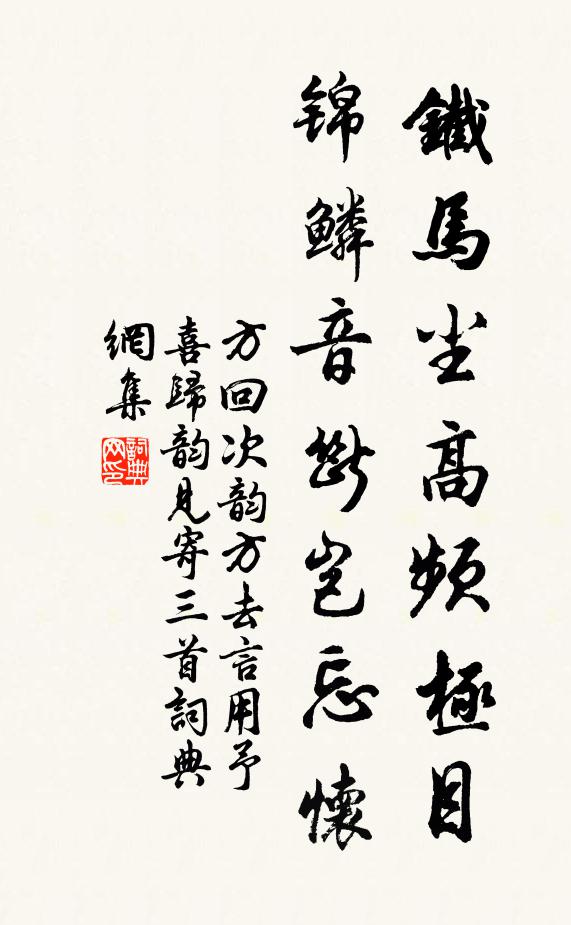 鐵馬尘高频極目
锦鳞音斷岂忘懷
方回次韵方去言用予
喜歸韵見寄三首詞典
網集
詞典
网印